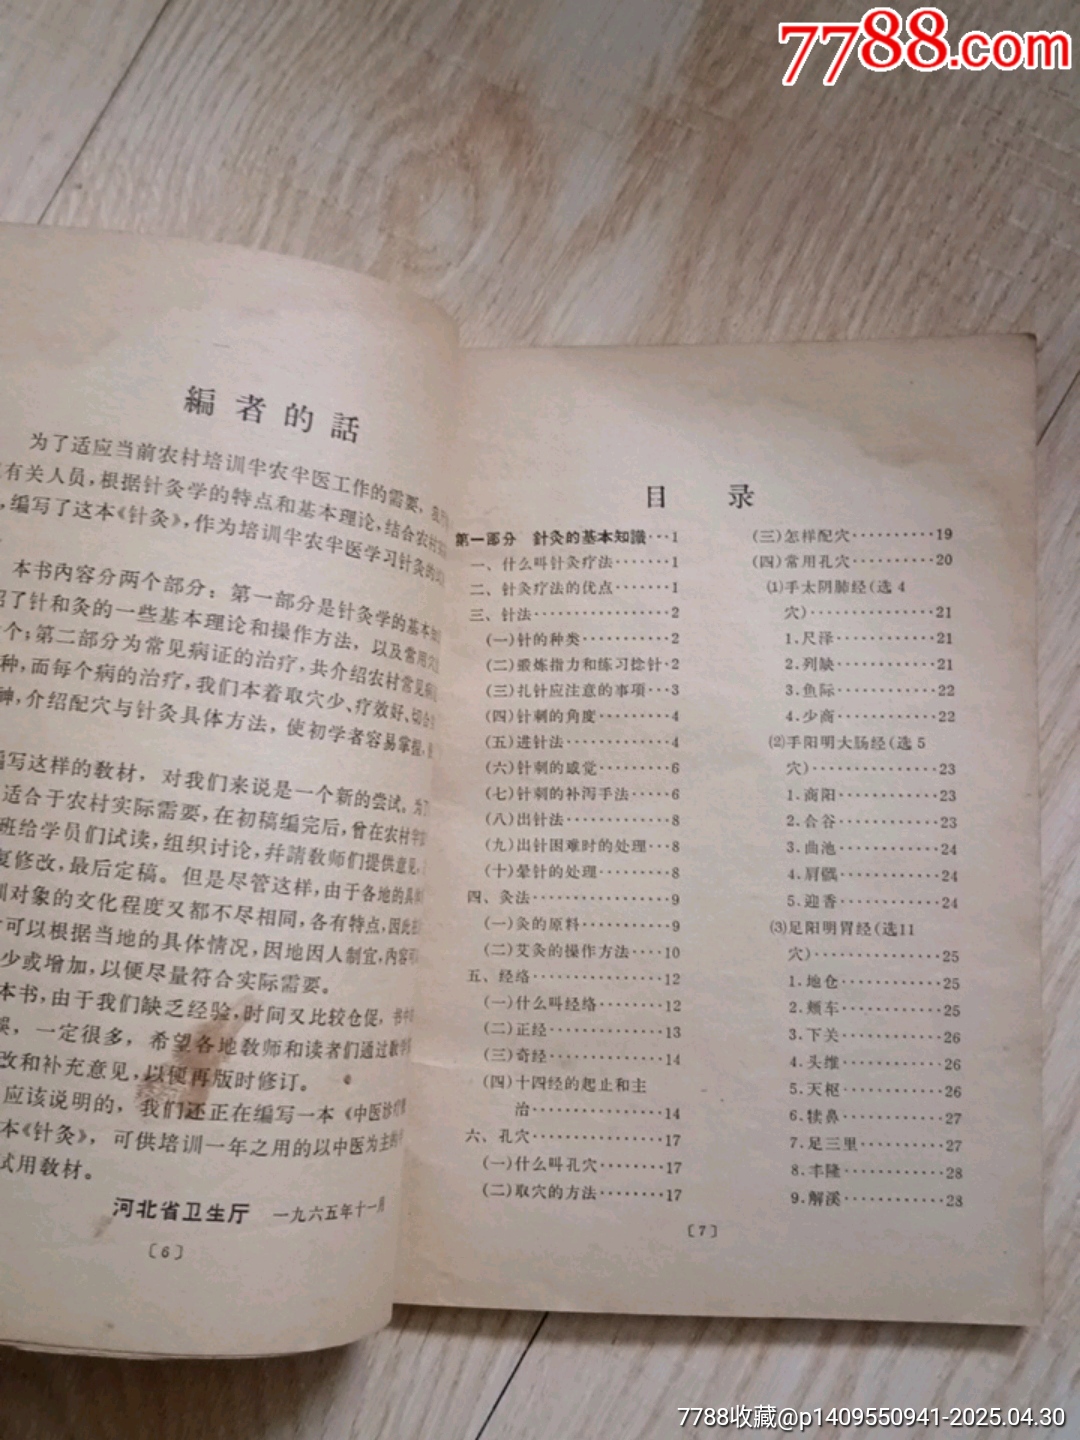 7788.com
編者的話
为了适应当前农村培训半农半医工作的需要，
有关人员，根据针灸学的特点和基本理论，结合农村
，编写了这本《针灸》，作为培训半农半医学习针灸的
本书内容分两个部分：第一部分是针灸学的基本
绍了针和灸的一些基本理论和操作方法，以及常用
个；第二部分为常见病证的治疗，共介绍农村常见病
种，而每个病的治疗，我们本着取穴少、疗效好、切合
神，介绍配穴与针灸具体方法，使初学者容易掌握，
编写这样的教材，对我们来说是一个新的尝试。为了
适合于农村实际需要，在初稿编完后，曾在农村半农
班给学员们试读，组织讨论，并請教师们提供意见，
复修改，最后定稿。但是尽管这样，由于各地的具体
训对象的文化程度又都不尽相同，各有特点，因此在
可以根据当地的具体情况，因地因人制宜，内容可
少或增加，以便尽量符合实际需要。
本书，由于我们缺乏经验，时间又比较仓促，书中
误，一定很多，希望各地教师和读者们通过教学
改和补充意见，以便再版时修订。
应该说明的，我们还正在编写一本《中医诊疗
本《针灸》，可供培训一年之用的以中医为主的
试用教材。
河北省卫生厅 一九六五年十一月
〔6〕
目 录
第一部分 針灸的基本知識···1
一、什么叫针灸疗法·······1
二、针灸疗法的优点·······1
三、针法·················2
(一)针的种类···········2
(二)鍛炼指力和练习捻针·2
(三)扎针应注意的事项···3
(四)针刺的角度·········4
(五)进针法·············4
(六)针刺的感觉·········6
(七)针刺的补泻手法·····6
(八)出针法·············8
(九)出针困难时的处理···8
(十)晕针的处理·········8
四、灸法·················9
(一)灸的原料···········9
(二)艾灸的操作方法····10
五、经络················12
(一)什么叫经络········12
(二)正经··············13
(三)奇经··············14
(四)十四经的起止和主
治················14
六、孔穴················17
(一)什么叫孔穴········17
(二)取穴的方法········17
(三)怎样配穴··········19
(四)常用孔穴··········20
⑴手太阴肺经(选4
穴)···············21
1.尺泽·············21
2.列缺·············21
3.鱼际·············22
4.少商·············22
⑵手阳明大肠经(选5
穴)···············23
1.商阳·············23
2.合谷·············23
3.曲池·············24
4.肩髃·············24
5.迎香·············24
⑶足阳明胃经(选11
穴)···············25
1.地仓·············25
2.頰车·············25
3.下关·············26
4.头维·············26
5.天枢·············26
6.犊鼻·············27
7.足三里···········27
8.丰隆·············28
9.解溪·············28
〔7〕
7788收藏@p1409550941-2025.04.30